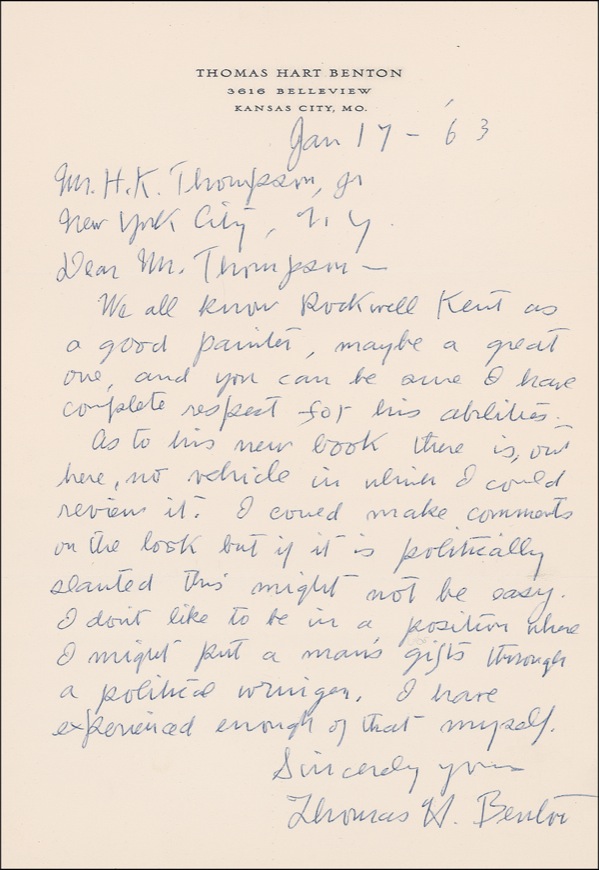 THOMAS HART BENTON
3616 BELLEVIEW
KANSAS CITY, MO.
Jan 17 - '63
Mr. H.K. Thompson, jr
New York City, N.Y.
Dear Mr. Thompson -
We all know Rockwell Kent as
a good painter, maybe a great
one, and you can be sure I have
complete respect for his abilities.
As to his new book there is, out
here, no vehicle in which I could
review it. I could make comments
on the book but if it is politically
slanted this might not be easy.
I dont like to be in a position where
I might put a man's gifts through
a political wringer. I have
experienced enough of that myself.
Sincerely yours
Thomas H. Benton